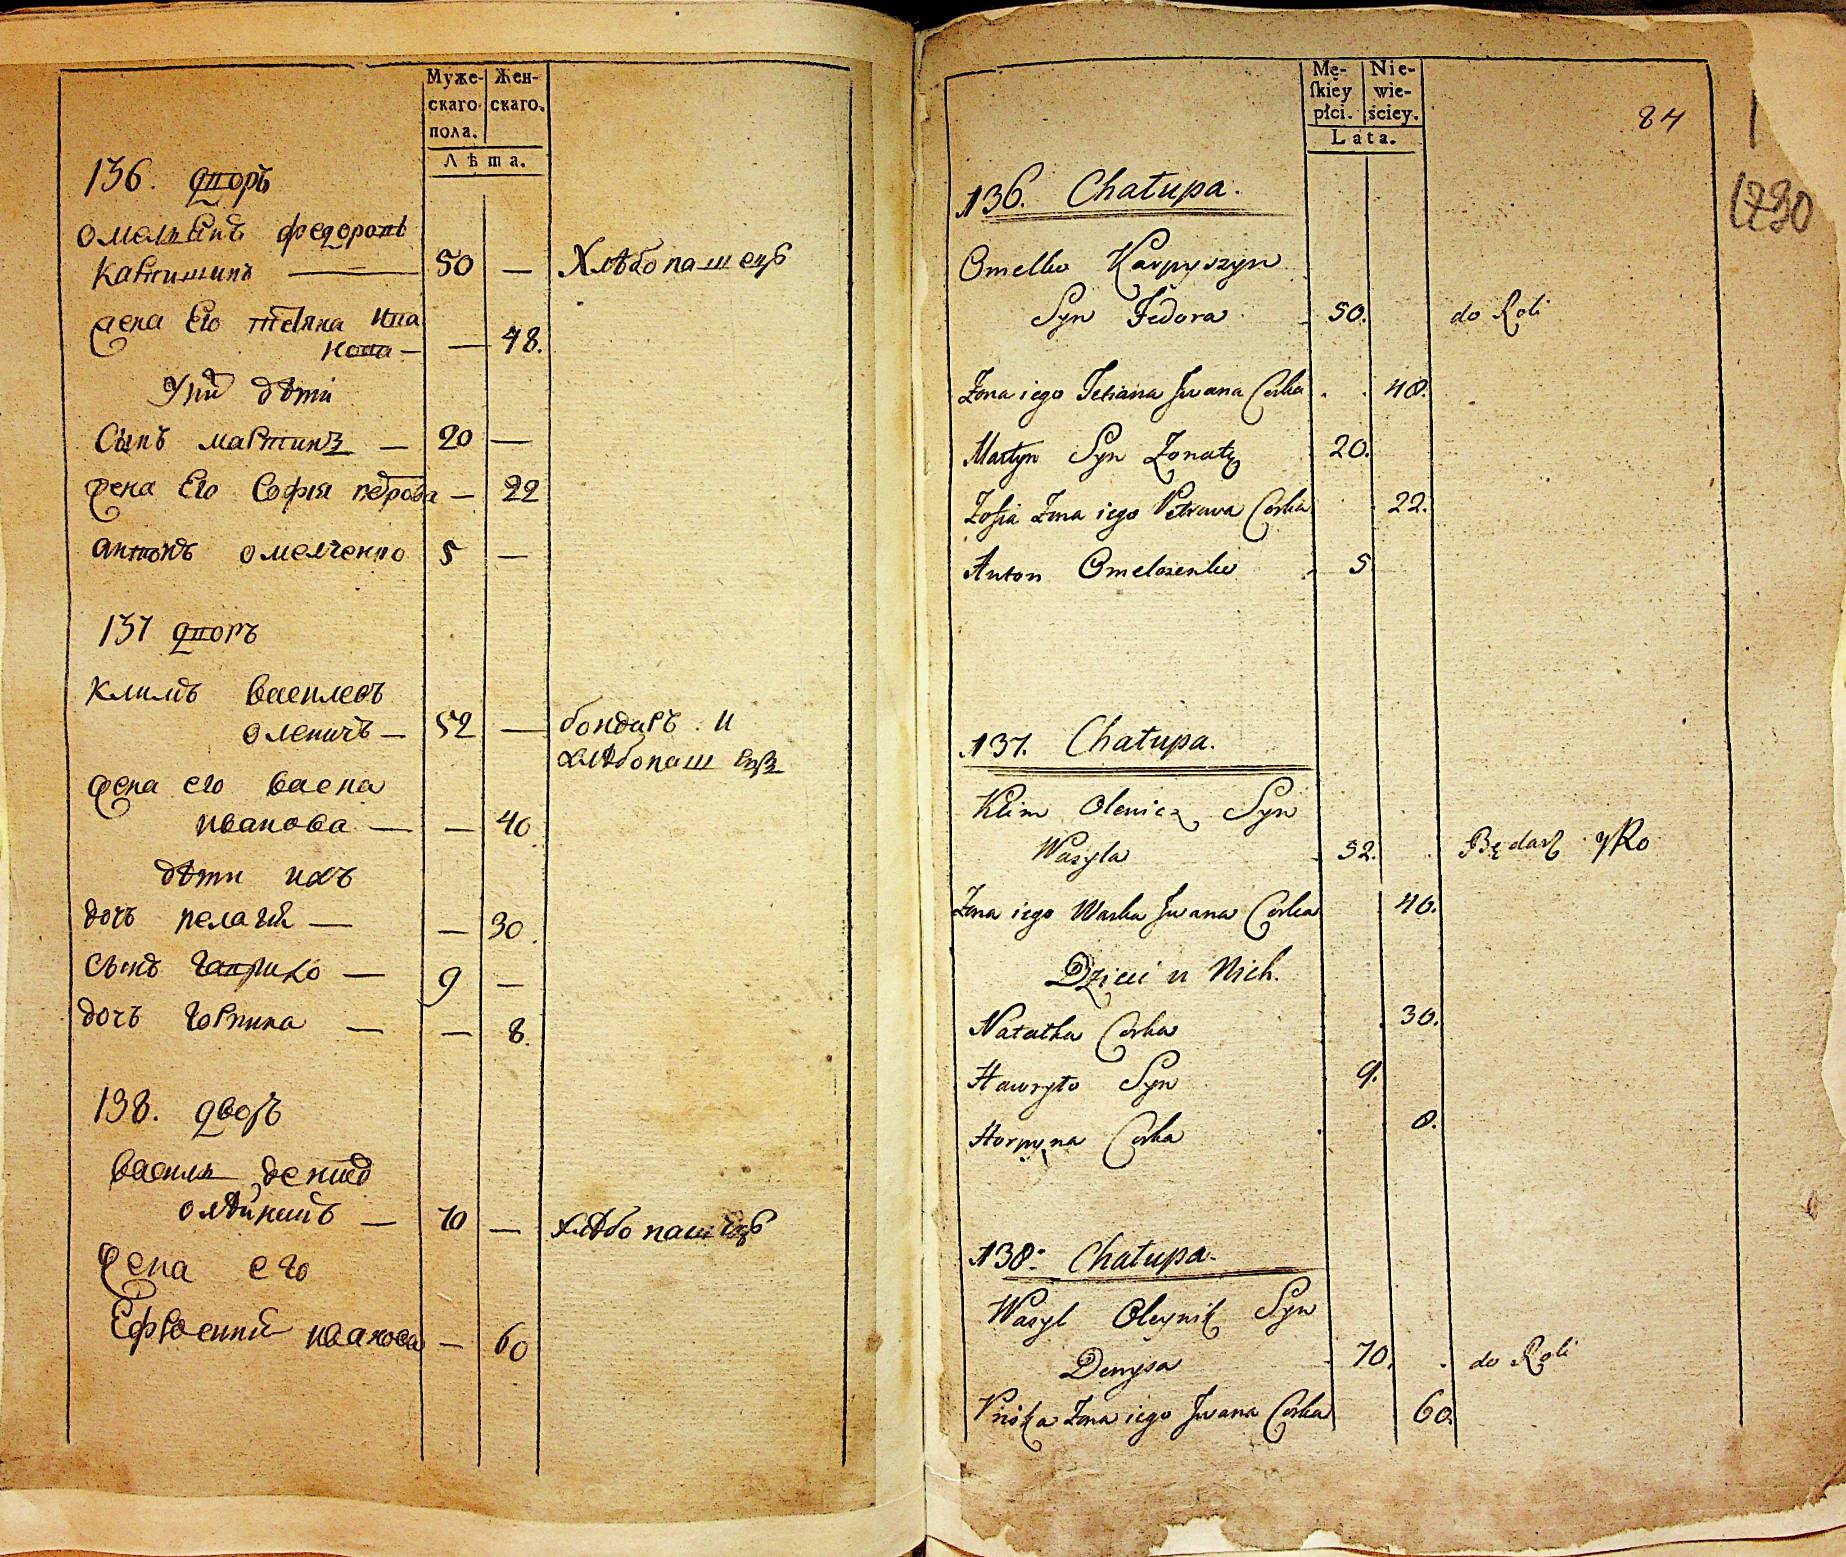 Муже- Жен-
скаго скаго.
пола.
Лѣта.
136. дворъ
омельянъ федоровъ
Карпишинъ — 50 — Хлѣбопашецъ
жена Его тетяна ива
нова — — 48.
У нихъ дѣти
Сынъ мартинъ — 20 —
жена Его Софія петрова — 22
антонъ омелченко 5 —
137 дворъ
климъ василевъ
оленичъ — 52 — бондаръ и
хлѣбопашецъ
жена его васка
иванова — — 40
дѣти ихъ
дочь пелагия — — 30.
сынъ гаврило — 9 —
дочь горпина — — 8.
138. дворъ
василь денисов
олѣйникъ — 70 — хлѣбопашецъ
жена его
Ефросиния иванова — 60
Mę- Nie-
skiey wie-
płci. ściey.
Lata.
84
1790
136. Chałupa.
Omelko Karpyszyn
Syn Fedora 50. do Roli
Zona iego Tetiana Jwana Corka 48.
Martyn Syn Zonaty 20.
Zofia Zona iego Petrowa Corka 22.
Anton Omelczenko 5
137. Chałupa.
Klim Olenicz Syn
Wasyla 52. Będarz y Ro
Zona iego Waska Jwana Corka 40.
Dzieci u Nich.
Natałka Corka 30.
Hawryło Syn 9.
Horpyna Corka 8.
138. Chałupa.
Wasyl Oleynik Syn
Denysa 70. do Roli
Priśka Zona iego Jwana Corka 60.